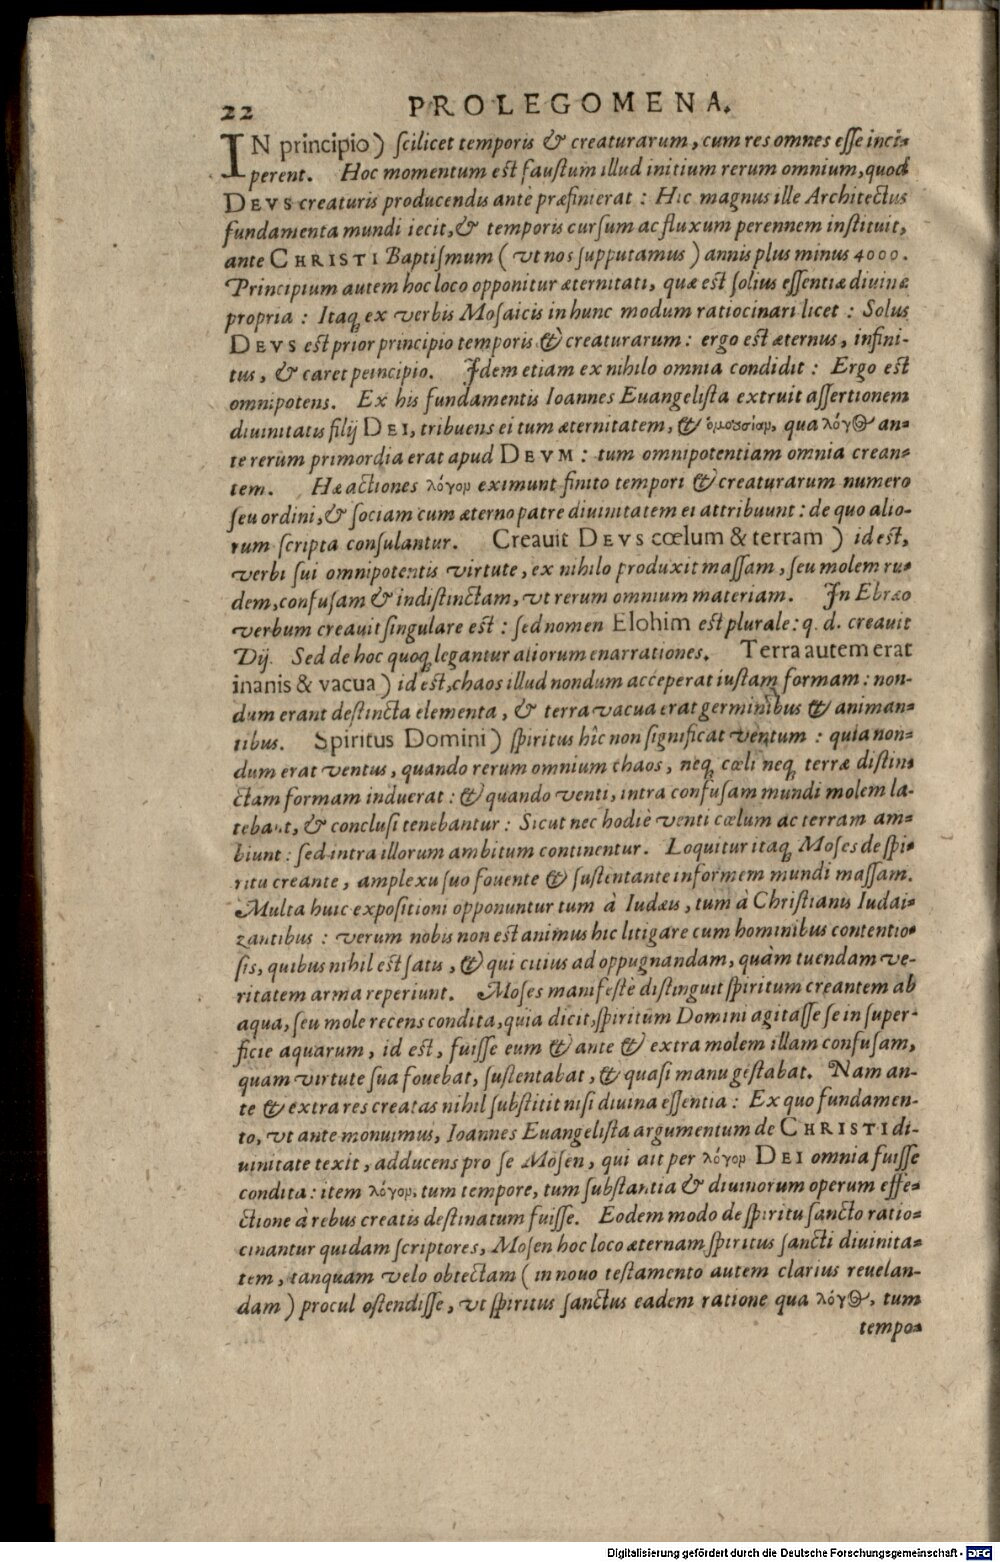 22 PROLEGOMENA.
IN principio) ſcilicet temporis & creaturarum, cum res omnes eſſe inci-
perent. Hoc momentum eſt fauſtum illud initium rerum omnium, quod
DEVS creaturis producendis antè præfinierat: Hic magnus ille Architectus
fundamenta mundi iecit, & temporis curſum ac fluxum perennem inſtituit,
ante CHRISTI Baptiſmum (vt nos ſupputamus) annis plus minus 4000.
Principium autem hoc loco opponitur æternitati, quæ eſt ſolius eſſentiæ diuinæ
propria: Itaq; ex verbis Moſaicis in hunc modum ratiocinari licet: Solus
DEVS eſt prior principio temporis & creaturarum: ergo eſt æternus, infini-
tus, & caret peincipio. Idem etiam ex nihilo omnia condidit: Ergo eſt
omnipotens. Ex his fundamentis Ioannes Euangeliſta extruit aſſertionem
diuinitatis filij DEI, tribuens ei tum æternitatem, & ὁμουσίαν, qua λόγος an-
te rerum primordia erat apud DEVM: tum omnipotentiam omnia crean-
tem. Hæ actiones λόγον eximunt finito tempori & creaturarum numero
ſeu ordini, & ſociam cum æterno patre diuinitatem ei attribuunt: de quo alio-
rum ſcripta conſulantur. Creauit DEVS cœlum & terram) id eſt,
verbi ſui omnipotentis virtute, ex nihilo produxit maſſam, ſeu molem ru-
dem, confuſam & indiſtinctam, vt rerum omnium materiam. In Ebræo
verbum creauit ſingulare eſt: ſed nomen Elohim eſt plurale: q. d. creauit
Dij. Sed de hoc quoq; legantur aliorum enarrationes. Terra autem erat
inanis & vacua) id eſt, chaos illud nondum acceperat iuſtam formam: non-
dum erant deſtincta elementa, & terra vacua erat germinibus & animan-
tibus. Spiritus Domini) ſpiritus hîc non ſignificat ventum: quia non-
dum erat ventus, quando rerum omnium chaos, neq; cœli neq; terræ diſtin-
ctam formam induerat: & quando venti, intra confuſam mundi molem la-
tebant, & concluſi tenebantur: Sicut nec hodiè venti cœlum ac terram am-
biunt: ſed intra illorum ambitum continentur. Loquitur itaq; Moſes de ſpi-
ritu creante, amplexu ſuo fouente & ſuſtentante informem mundi maſſam.
Multa huic expoſitioni opponuntur tum à Iudæis, tum à Chriſtianis Iudai-
zantibus: verum nobis non eſt animus hic litigare cum hominibus contentio-
ſis, quibus nihil eſt ſatis, & qui citius ad oppugnandam, quàm tuendam ve-
ritatem arma reperiunt. Moſes manifeſtè diſtinguit ſpiritum creantem ab
aqua, ſeu mole recens condita, quia dicit, ſpiritum Domini agitaſſe ſe in ſuper-
ficie aquarum, id eſt, fuiſſe eum & ante & extra molem illam confuſam,
quam virtute ſua fouebat, ſuſtentabat, & quaſi manu geſtabat. Nam an-
te & extra res creatas nihil ſubſtitit niſi diuina eſſentia: Ex quo fundamen-
to, vt ante monuimus, Ioannes Euangeliſta argumentum de CHRISTI di-
uinitate texit, adducens pro ſe Moſen, qui ait per λόγον DEI omnia fuiſſe
condita: item λόγον, tum tempore, tum ſubſtantia & diuinorum operum effe-
ctione à rebus creatis deſtinatum fuiſſe. Eodem modo de ſpiritu ſancto ratio-
cinantur quidam ſcriptores, Moſen hoc loco æternam ſpiritus ſancti diuinita-
tem, tanquam velo obtectam (in nouo teſtamento autem clarius reuelan-
dam) procul oſtendiſſe, vt ſpiritus ſanctus eadem ratione qua λόγος, tum
tempo-
Digitalisierung gefördert durch die Deutsche Forschungsgemeinschaft - DFG